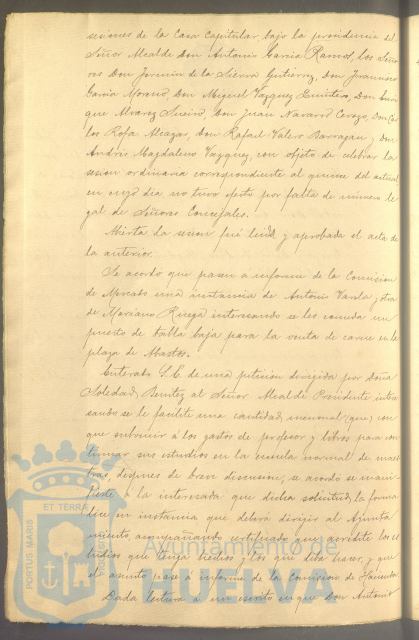 sesiones de la Casa Capitular bajo la presidencia del
Señor Alcalde Don Antonio Garcia Ramos, los Seño
res Don Fermin de la Sierra Gutierrez, Don Francisco
Garcia Morano, Don Miguel Vazquez Quintero, Don Enri
que Alvarez Sueiro, Don Juan Navarro Cerezo, Don Car
los Rofa Alcazar, Don Rafael Valero Barragan y Don
Andrés Magdaleno Vazquez, con objeto de celebrar la
sesion ordinaria correspondiente al quince del actual
en cuyo dia no tuvo efecto por falta de número le
gal de Señores Concejales.
Abierta la sesion fué leida y aprobada el acta de
la anterior.
Se acordó que pasen a informe de la Comision
de Mercado una instancia de Antonio y otra
de Mariano interesando se les conceda un
puesto de tabla baja para la venta de carne en la
plaza de Abastos.
Enterado S.E. de una peticion dirigida por Doña
Soledad Benitez al Señor Alcalde Presidente intere
sando se le facilite una cantidad mensual (que) con
que subvenir á los gastos de profesor y libros para con
tinuar sus estudios en la escuela normal de maes
tras, despues de breve discusion, se acordó se mani
fieste á la interesada que dicha solicitud la forma
lice en instancia que deberá dirigir al Ayunta
miento, acompañando certificado que acredite los es
tudios que tenga hechos y los que deba hacer, y que
el asunto pase á informe de la Comision de Hacienda.
Dada lectura á un escrito en que Don Antonio
PORTUS MARIS
ET TERRÆ
CUSTODIA
Ayuntamiento de
HUELVA